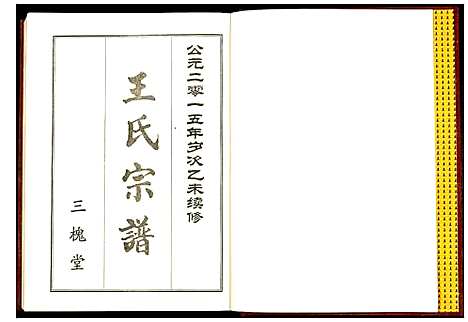 公元二零一五年岁次乙未续修
王氏宗譜
三槐堂